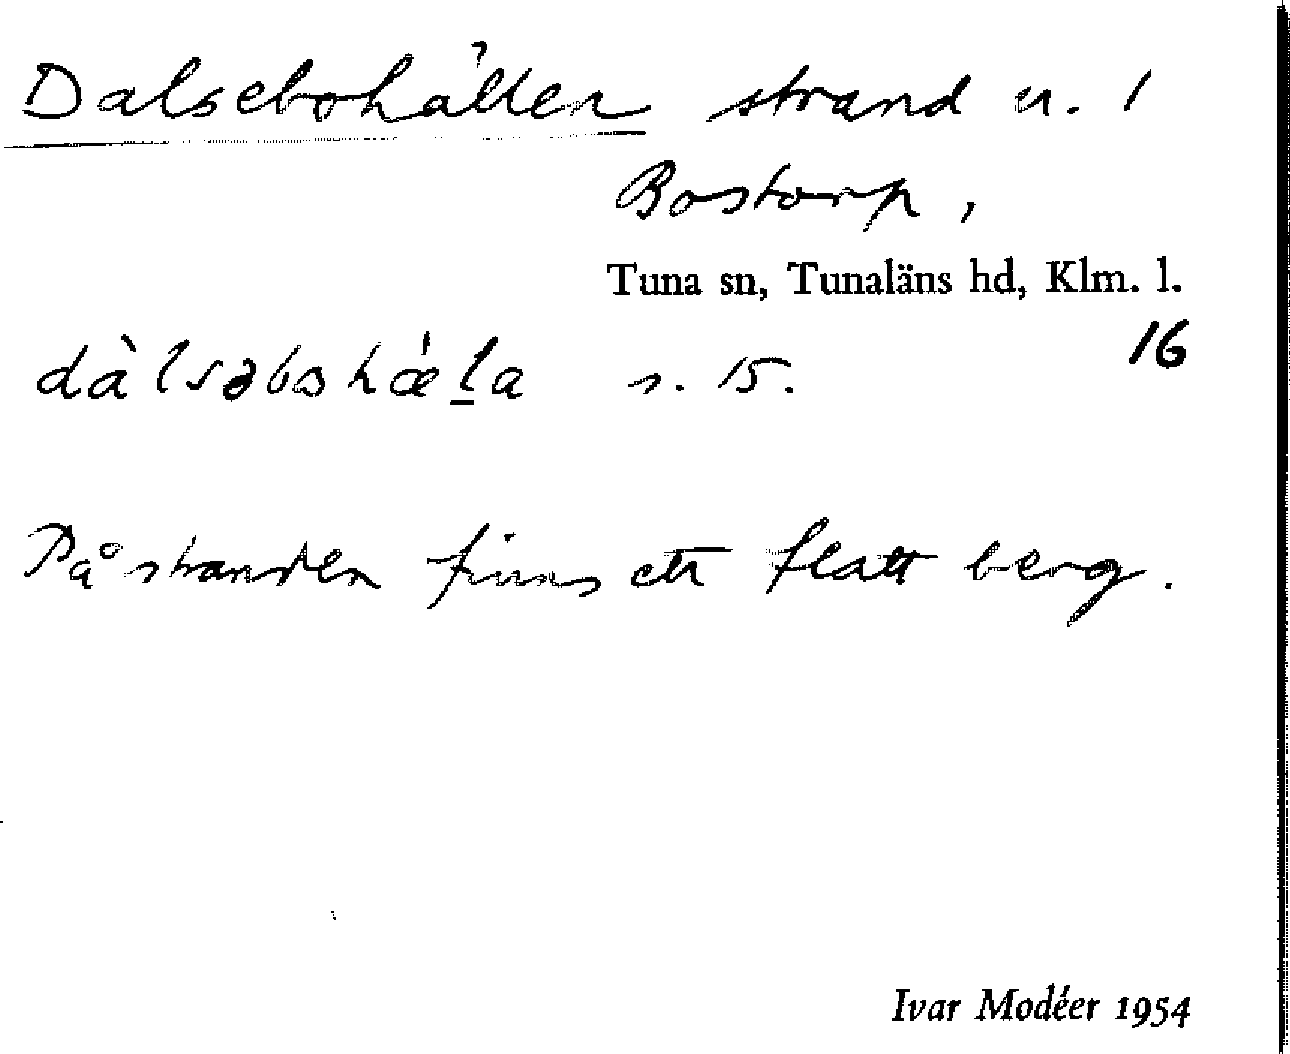 Dalsebohällen strand u. 1
Bostorp,
Tuna sn, Tunaläns hd, Klm. l.
16
dàlsəboshǽl̲a s. 15.
På stranden finns ett flatt berg.
Ivar Modéer 1954